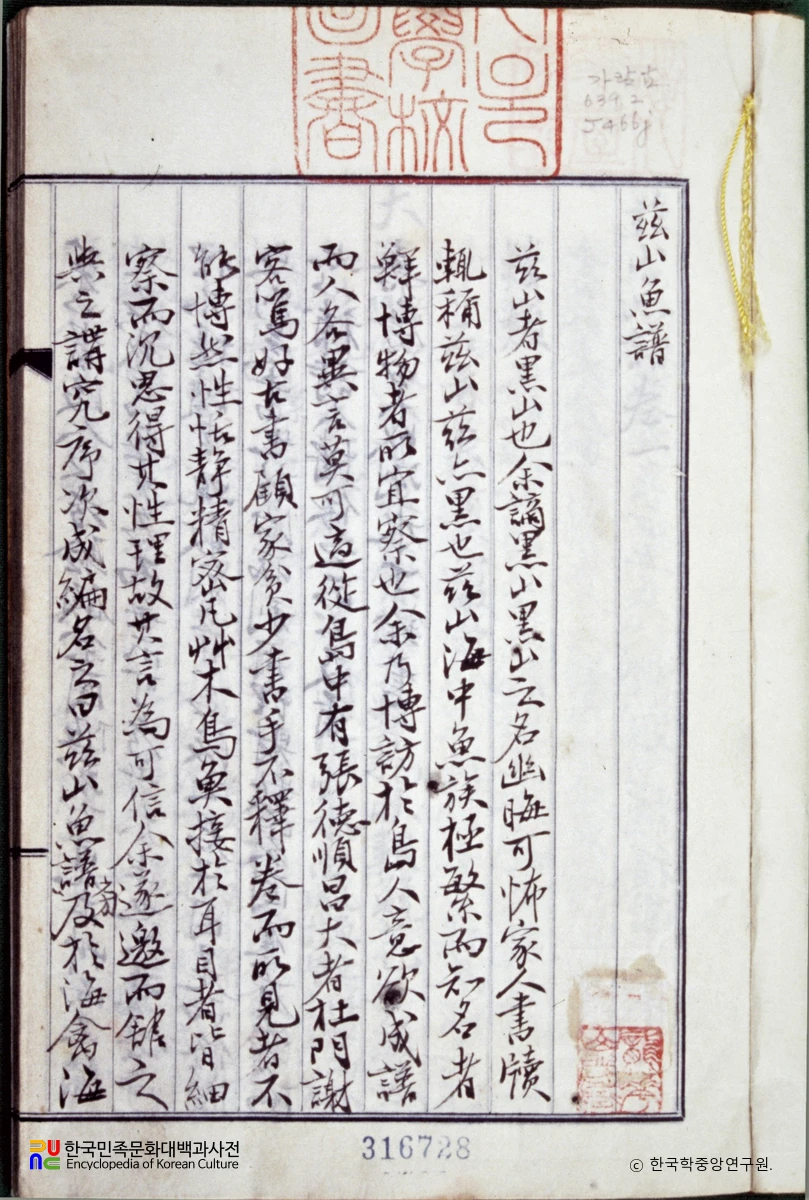 玆山魚譜
玆山者黑山也余謫黑山黑山之名幽晦可怖家人書牘
輒稱玆山玆亦黑也玆山海中魚族極繁而知名者
鮮博物者所宜察也余乃博訪於島人意欲成譜
而人各異言莫可適從島中有張德順昌大者杜門謝
客篤好古書顧家貧少書手不釋卷而所見者不
能博然性恬靜精密凡艸木鳥魚接於耳目者皆細
察而沉思得其性理故其言為可信余遂邀而舘之
與之講究序次成編名之曰玆山魚譜旁及於海禽海
學校
圖書
가람古
639.2
J466j
316728
한국민족문화대백과사전
Encyclopedia of Korean Culture
ⓒ 한국학중앙연구원.